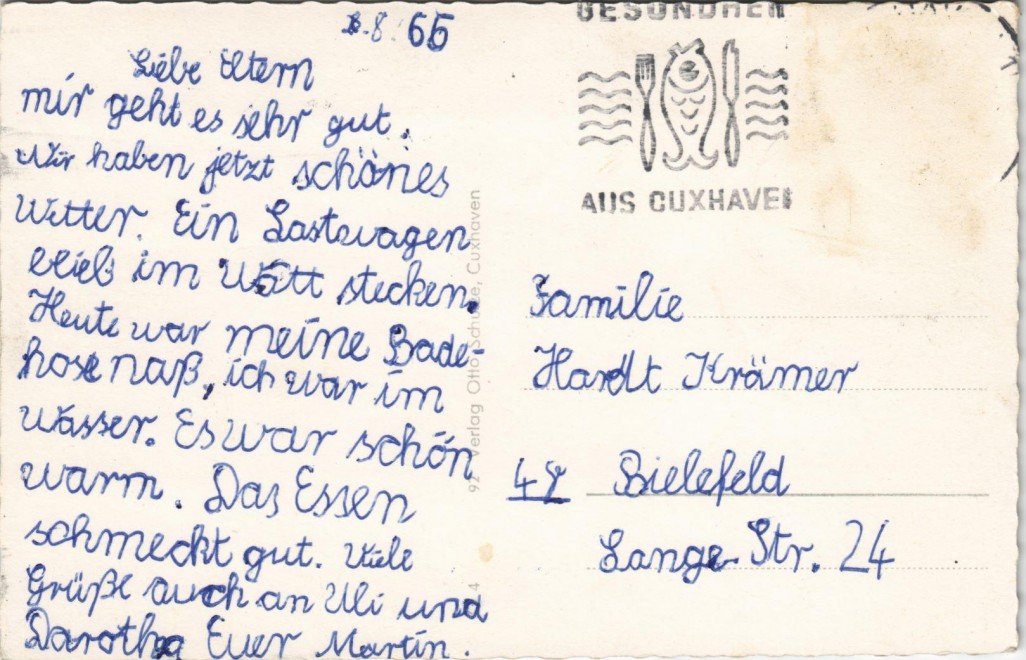 8.8.65
Liebe Eltern
mir geht es sehr gut.
Wir haben jetzt schönes
Wetter. Ein Lastwagen
blieb im Watt stecken.
Heute war meine Bade-
hose naß, ich war im
Wasser. Es war schön
warm. Das Essen
schmeckt gut. Viele
Grüße auch an Uli und
Darothea Euer Martin.
92 Verlag Otto Schulze, Cuxhaven
GESUNDHEIT
AUS CUXHAVEN
Familie
Hardt Krämer
48 Bielefeld
Lange Str. 24